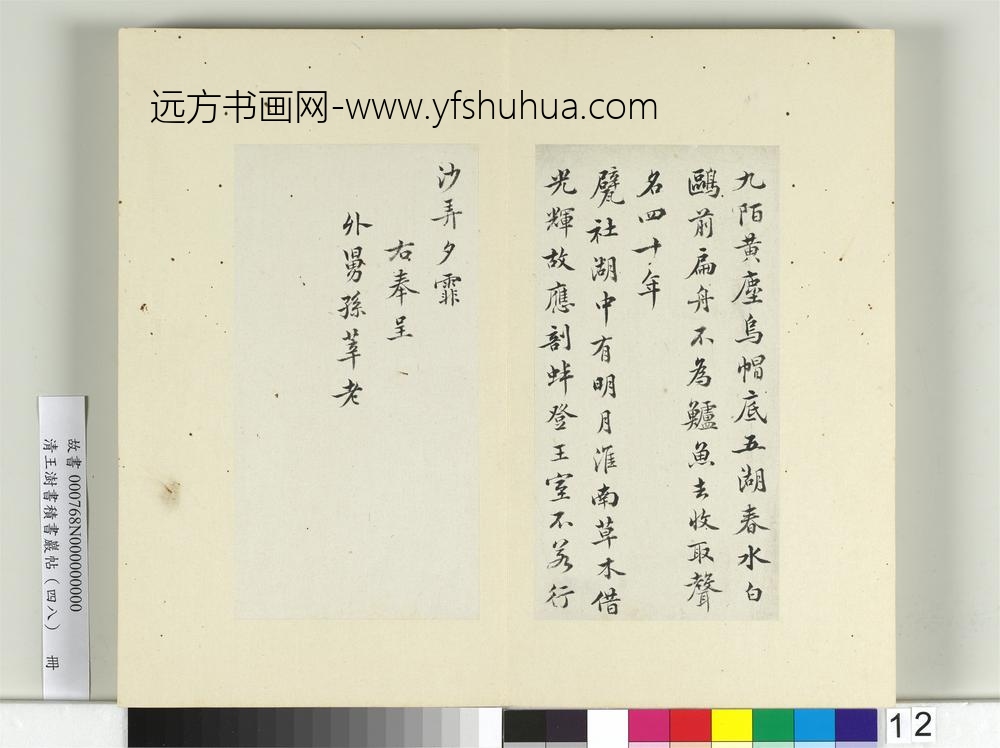 远方书画网-www.yfshuhua.com
九陌黄塵烏帽底五湖春水白
鷗前扁舟不為鱸魚去收取聲
名四十年
甓社湖中有明月淮南草木借
光輝故應剖蚌登王室不若行
沙弄夕霏
右奉呈
外舅孫莘老
故書 000768N000000000
清王澍書積書巖帖(四八) 冊
12